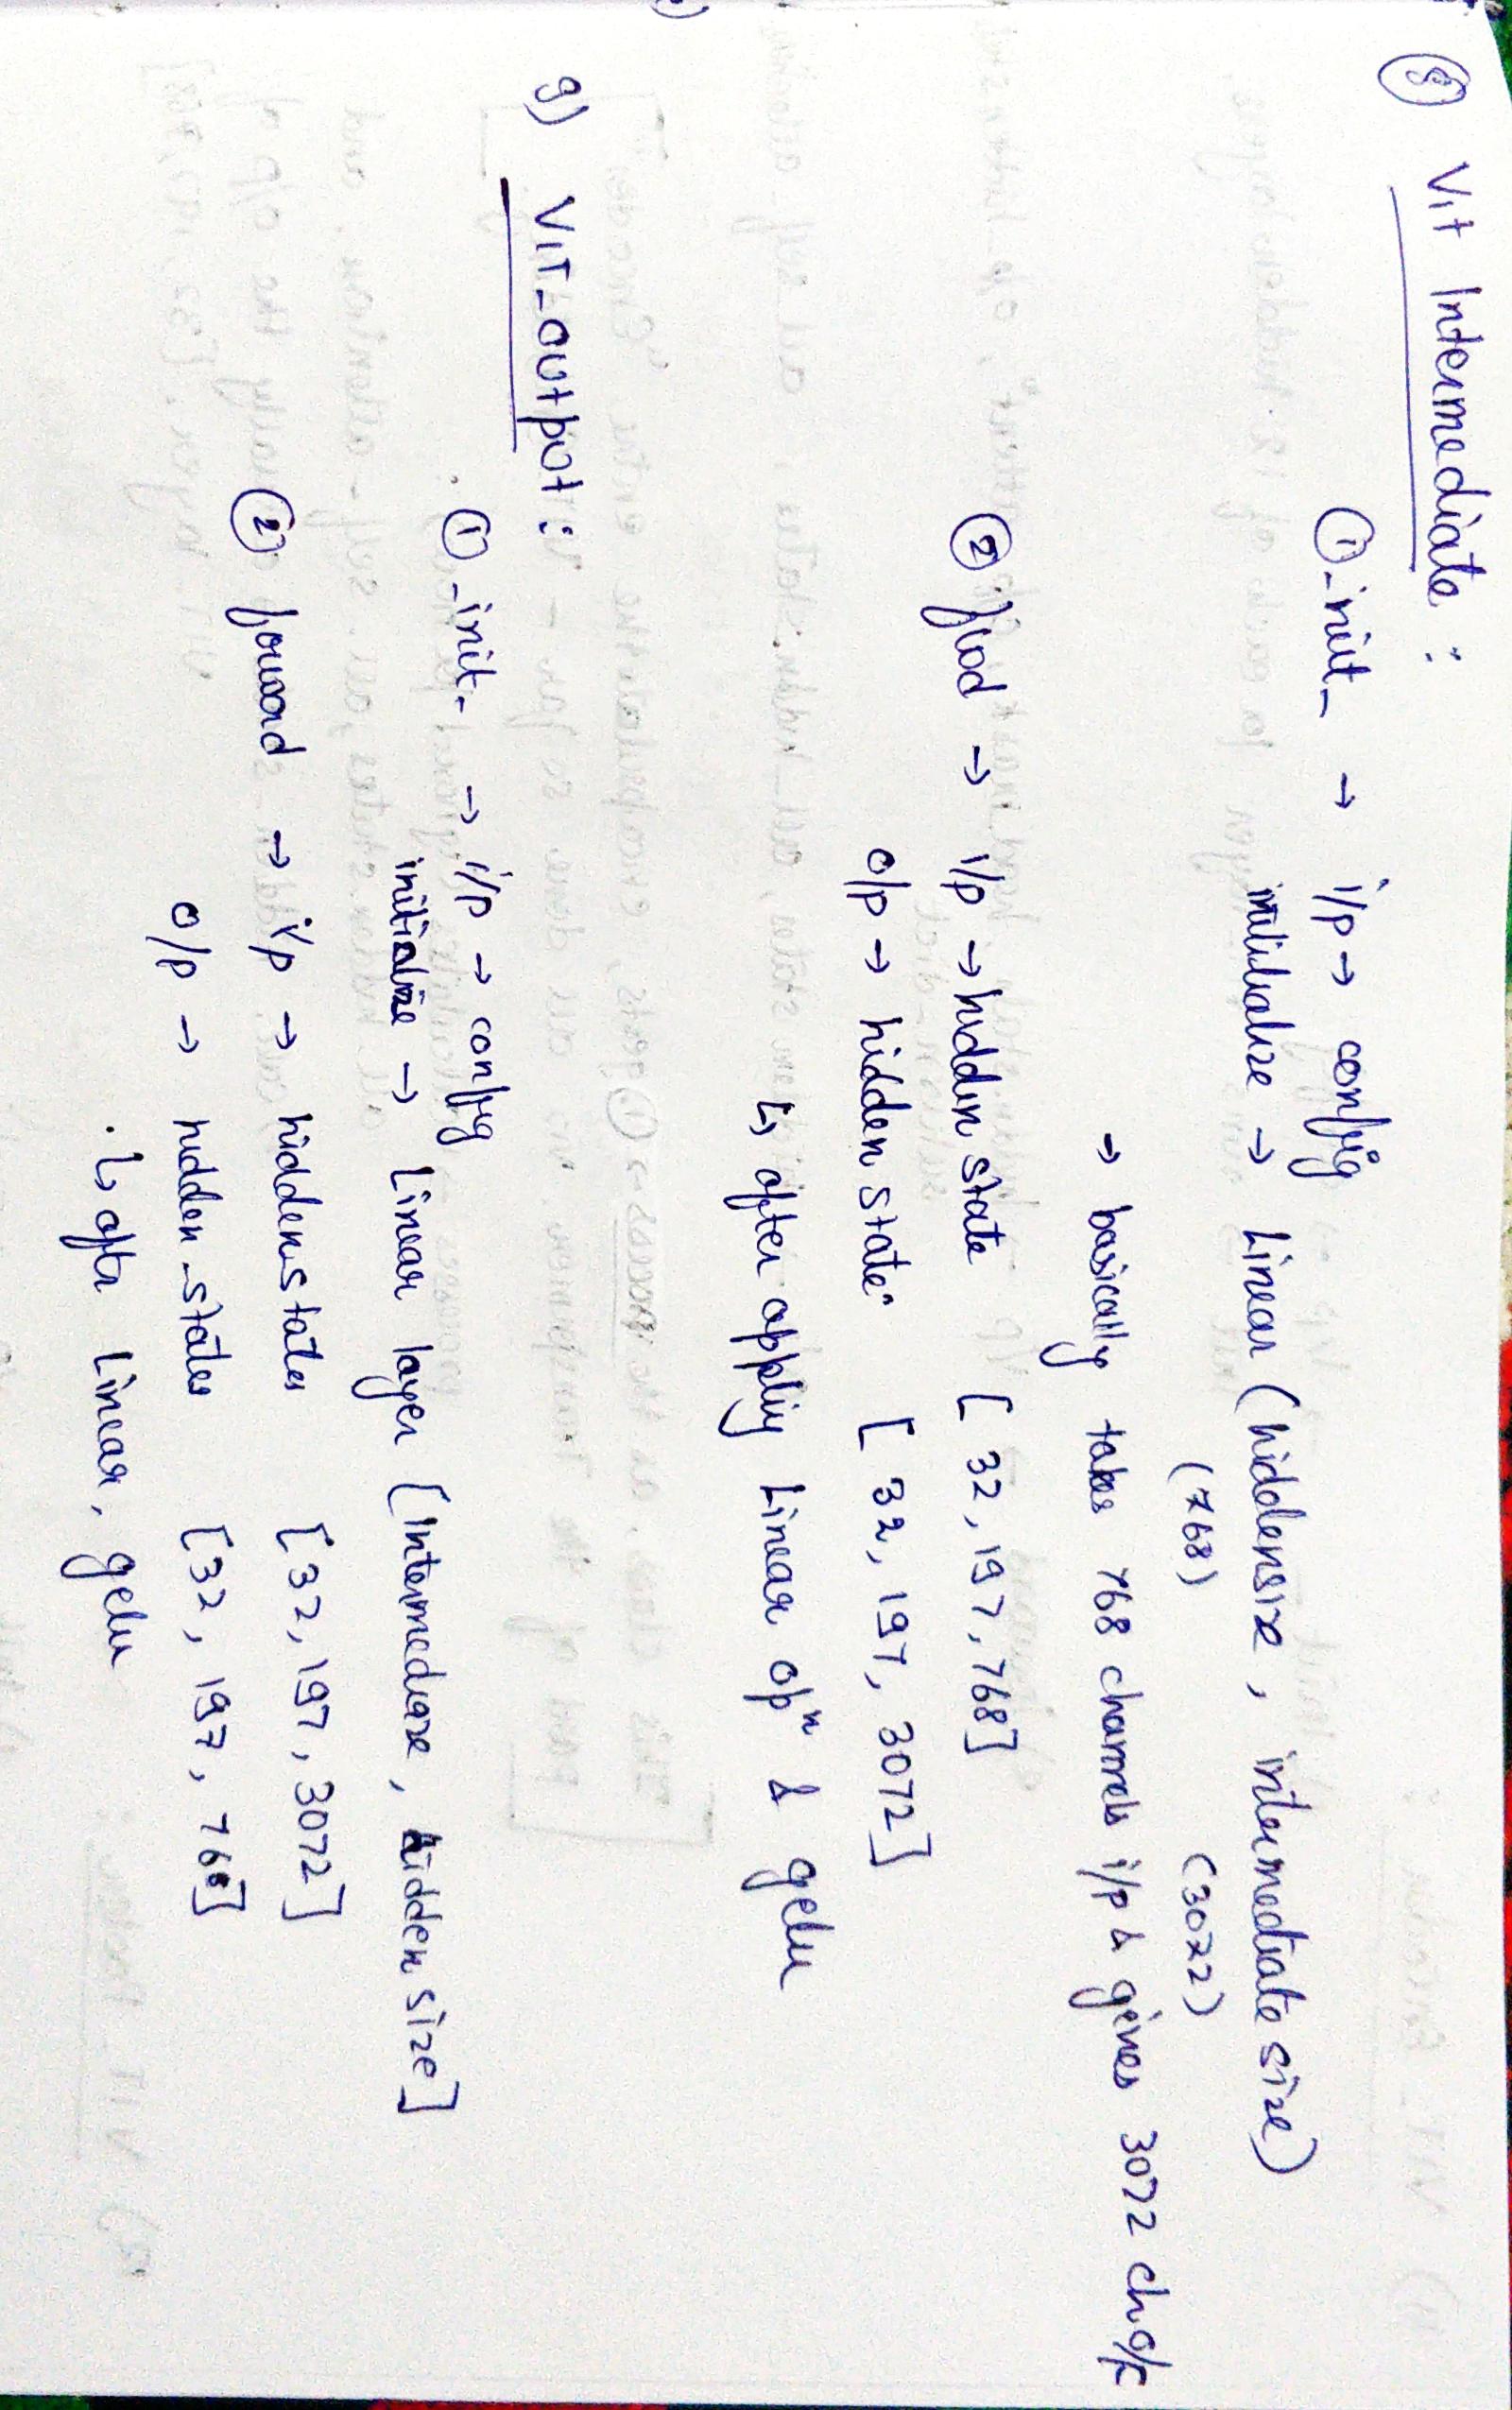 ⑧ Vit Intermediate :
① _init_ → i/p → config
initialize → Linear (hiddensize, intermediate size)
(768) (3072)
→ basically takes 768 channels i/p & gives 3072 ch o/p
② fwd → i/p → hidden state [32, 197, 768]
o/p → hidden state [32, 197, 3072]
↳ after appliy Linear opⁿ & gelu
9) VIT_output :
① _init_ → i/p → config
initialize → Linear layer [Intermediaze, hidden size]
② forward → i/p → hidden states [32, 197, 3072]
o/p → hidden_states [32, 197, 768]
↳ aftr Linear, gelu